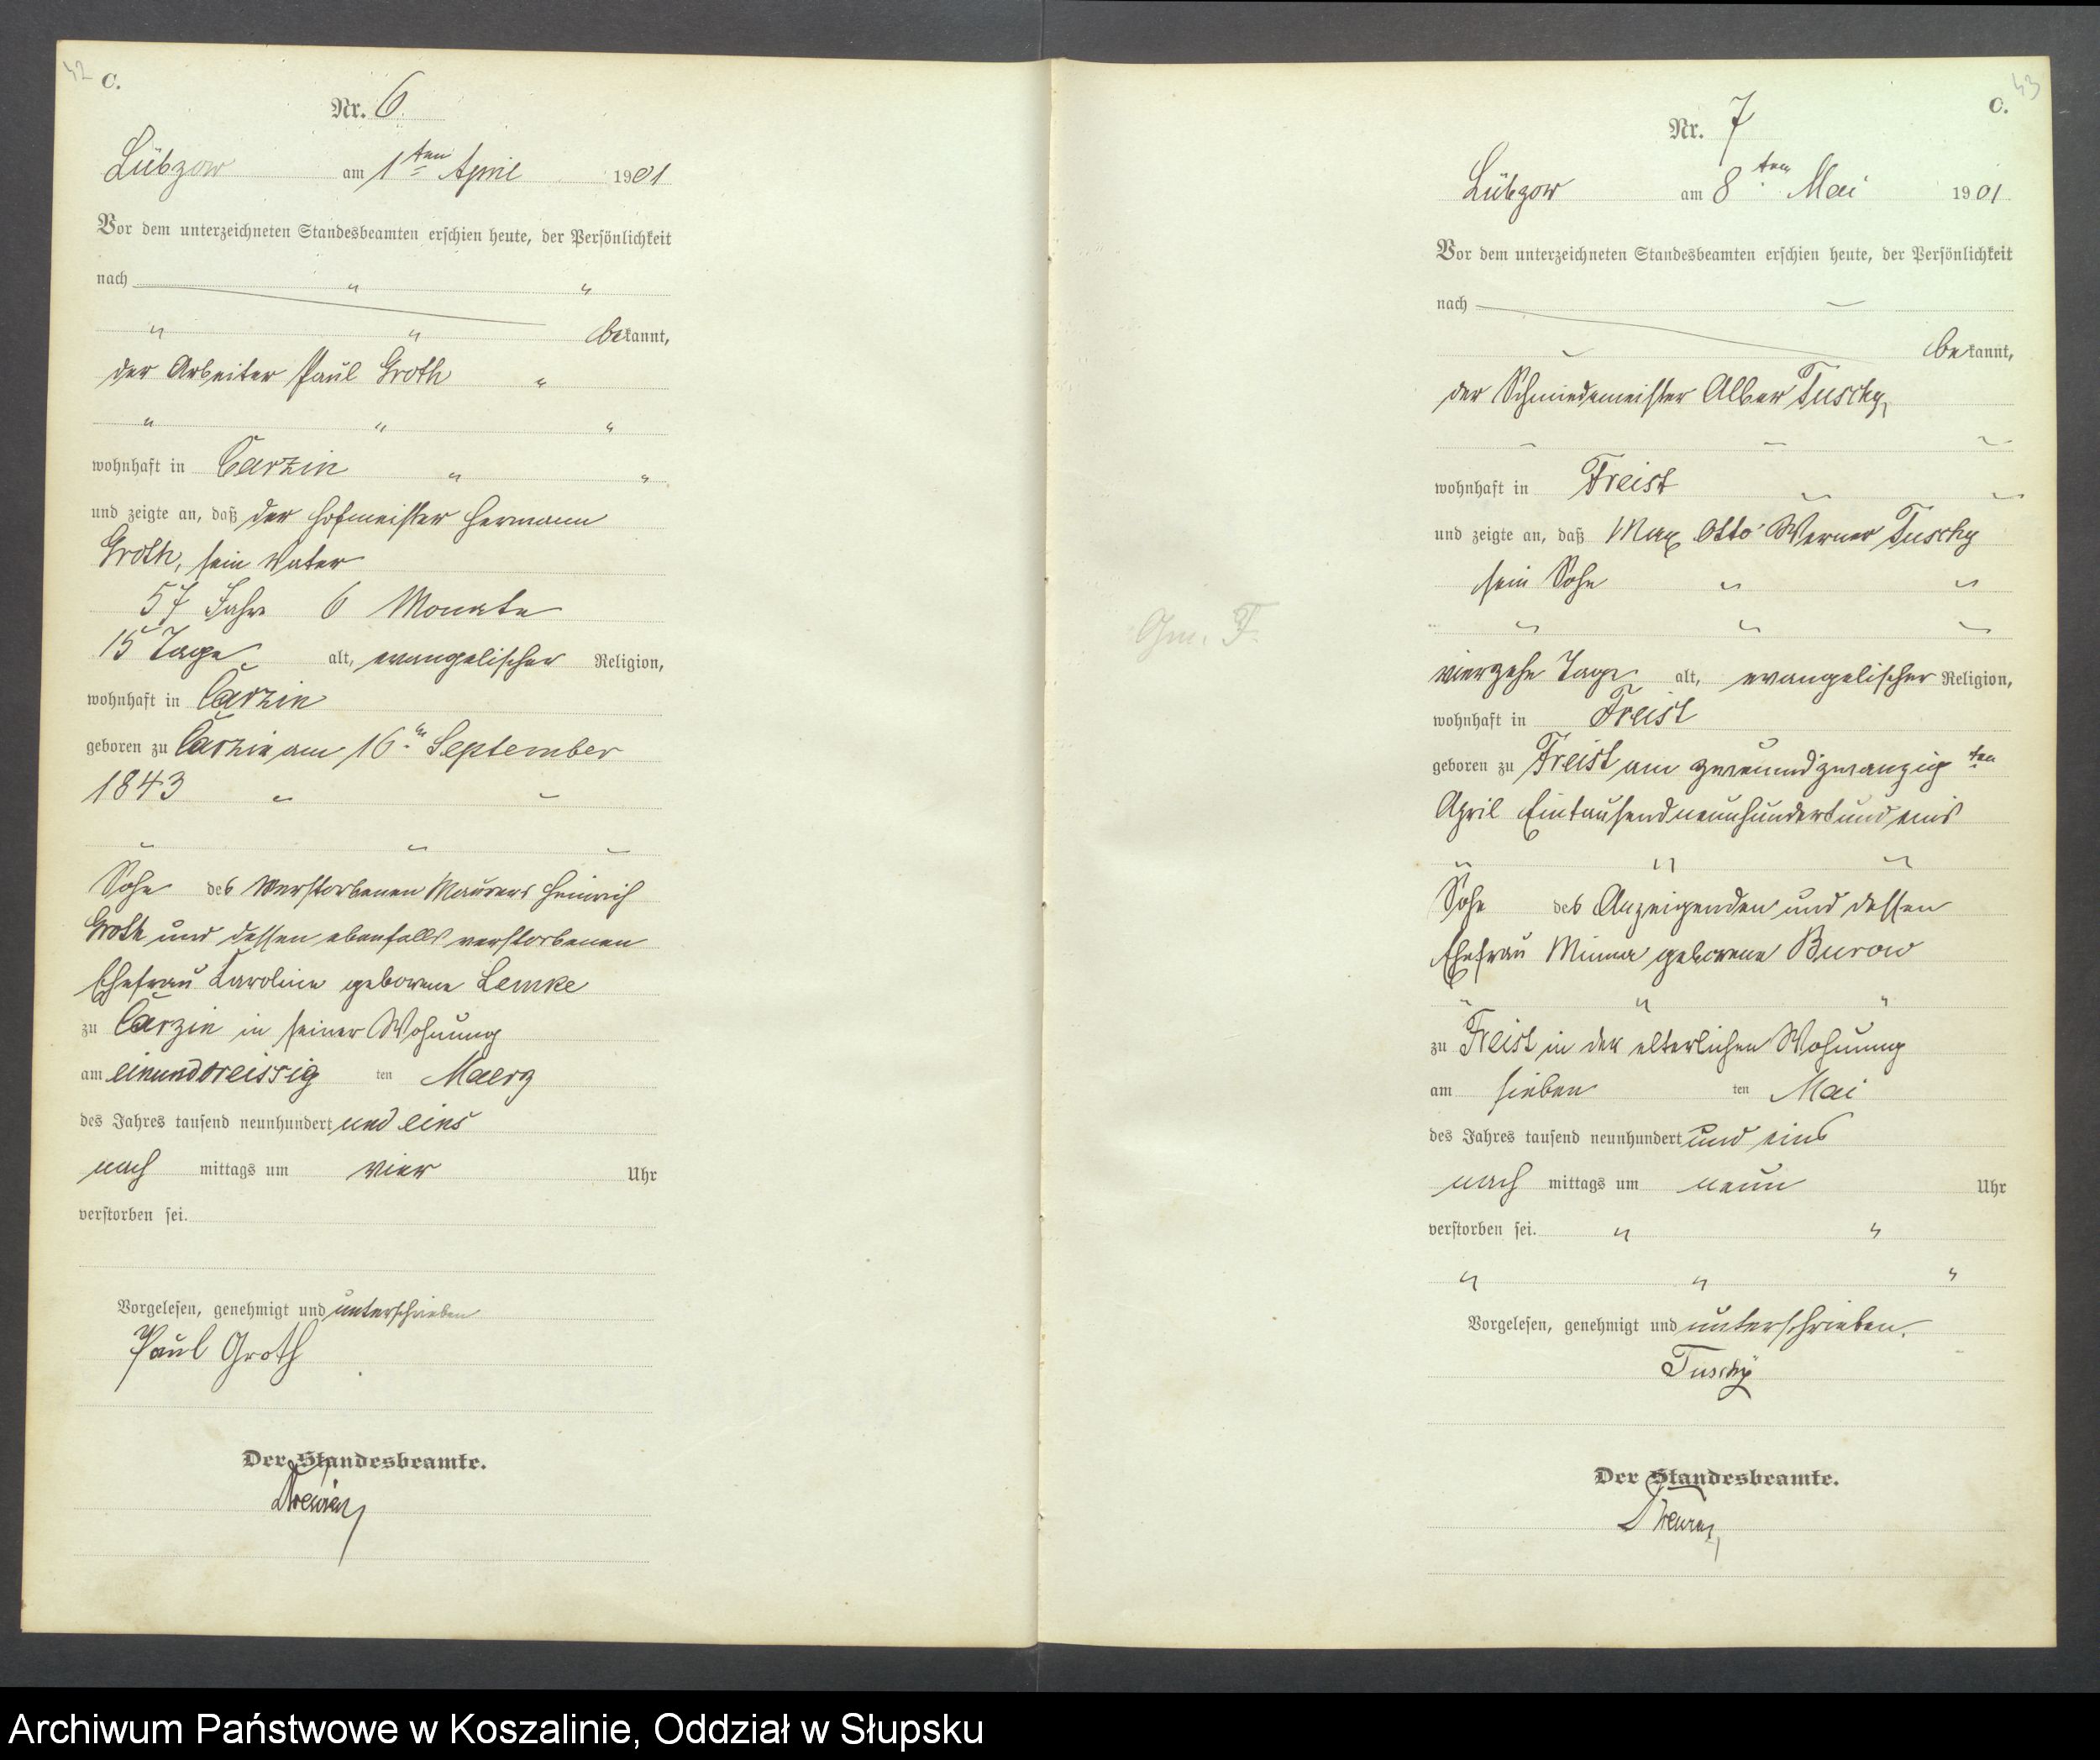 42 C.
Nr. 6.
Lübzow am 1ten April 1901
Vor dem unterzeichneten Standesbeamten erschien heute, der Persönlichkeit
nach " "
" " bekannt,
der Arbeiter Paul Groth "
" " "
wohnhaft in Carzin " "
und zeigte an, daß der Hofmeister Hermann
Groth, sein Vater
57 Jahre 6 Monate
15 Tage alt, evangelischer Religion,
wohnhaft in Carzin
geboren zu Carzin am 16.n September
1843 " "
" " "
Sohn des verstorbenen Maurers Heinrich
Groth und dessen ebenfalls verstorbenen
Ehefrau Karoline geborene Lemke
zu Carzin in seiner Wohnung
am einunddreissig ten Maerz
des Jahres tausend neunhundert und eins
nach mittags um vier Uhr
verstorben sei.
Vorgelesen, genehmigt und unterschrieben
Paul Groth
Der Standesbeamte.
43
C.
Nr. 7
Lübzow am 8ten Mai 1901
Vor dem unterzeichneten Standesbeamten erschien heute, der Persönlichkeit
nach "
" bekannt,
der Schmiedemeister Tuschy,
" " "
wohnhaft in Freist " "
und zeigte an, daß Max Otto Werner Tuschy
sein Sohn " "
" " "
vierzehn Tage alt, evangelischer Religion,
wohnhaft in Freist
geboren zu Freist am zweiundzwanzig ten
April Eintausendneunhundertundeins
" " "
Sohn des Anzeigenden und dessen
Ehefrau Minna geborene Burow
" " "
zu Freist in der elterlichen Wohnung
am sieben ten Mai
des Jahres tausend neunhundert und eins
nach mittags um neun Uhr
verstorben sei. " "
" " "
Vorgelesen, genehmigt und unterschrieben.
Tuschy
Der Standesbeamte.
Archiwum Państwowe w Koszalinie, Oddział w Słupsku